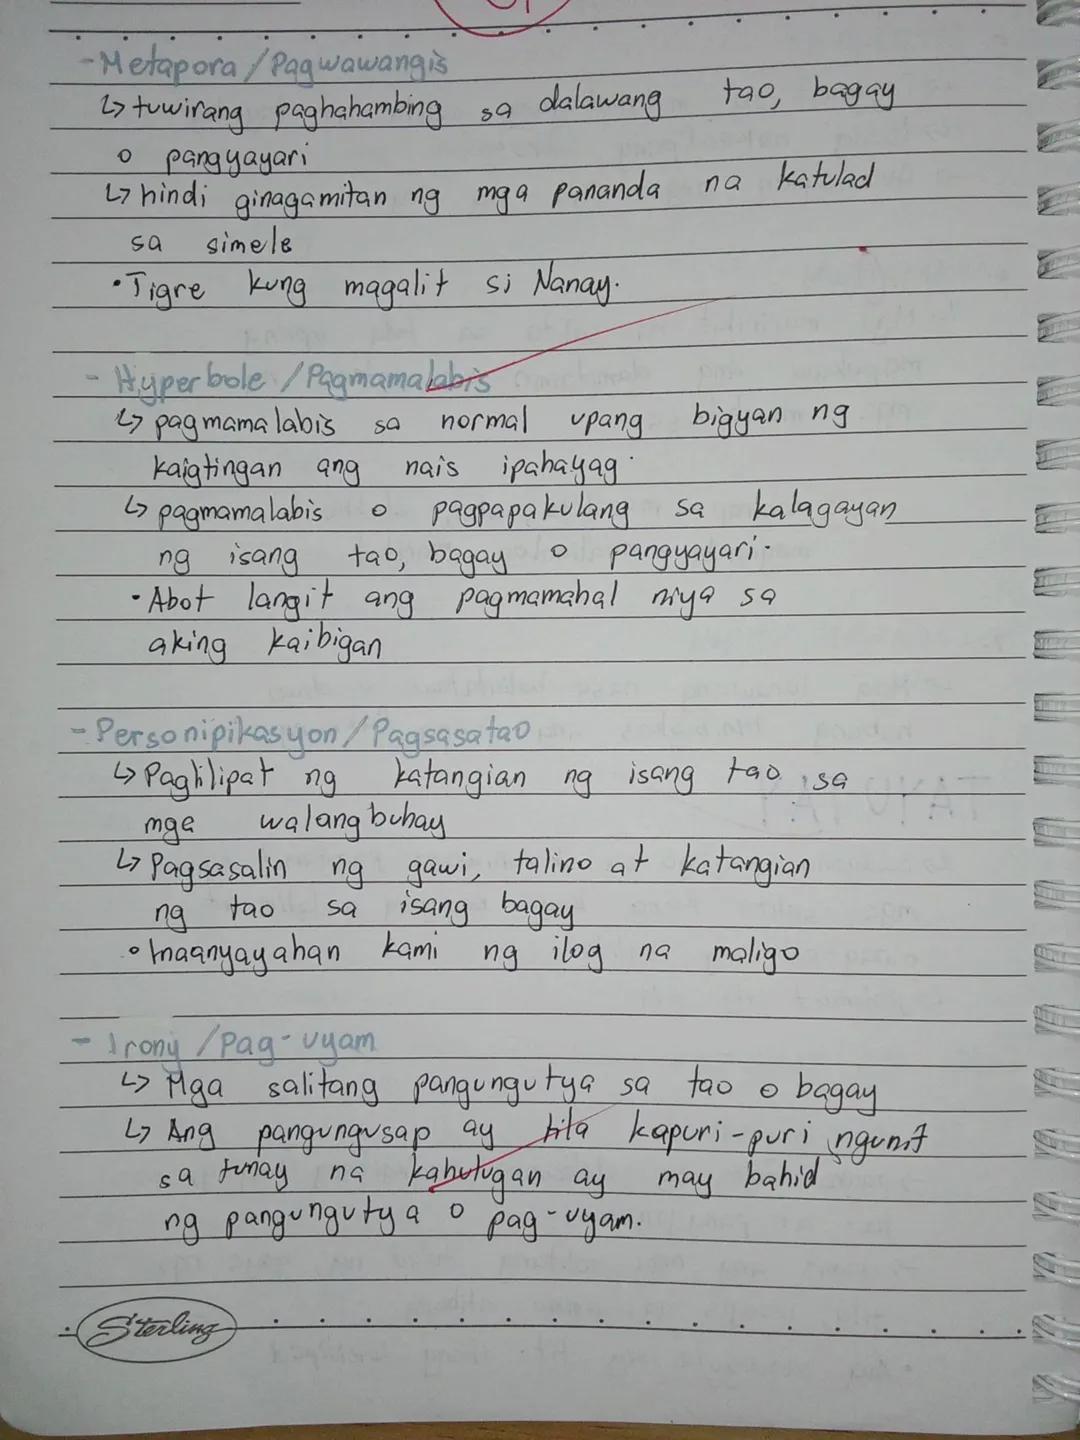 - Metapora / Pagwawangis
↳ tuwirang paghahambing sa dalawang tao, bagay
o pangyayari
↳ hindi ginagamitan ng mga pananda na katulad
sa simele
• Tigre kung magalit si Nanay.
- Hyperbole / Pagmamalabis
↳ pagmamalabis sa normal upang bigyan ng
kaigtingan ang nais ipahayag.
↳ pagmamalabis o pagpapakulang sa kalagayan
ng isang tao, bagay o pangyayari.
• Abot langit ang pagmamahal niya sa
aking kaibigan
- Personipikasyon / Pagsasatao
↳ Paglilipat ng katangian ng isang tao sa
mga walang buhay
↳ Pagsasalin ng gawi, talino at katangian
ng tao sa isang bagay
• Inaanyayahan kami ng ilog na maligo
- Irony / Pag-uyam
↳ Mga salitang pangungutya sa tao o bagay
↳ Ang pangungusap ay tila kapuri-puri ngunit
sa tunay na kahulugan ay may bahid
ng pangungutya o pag-uyam.
Sterling